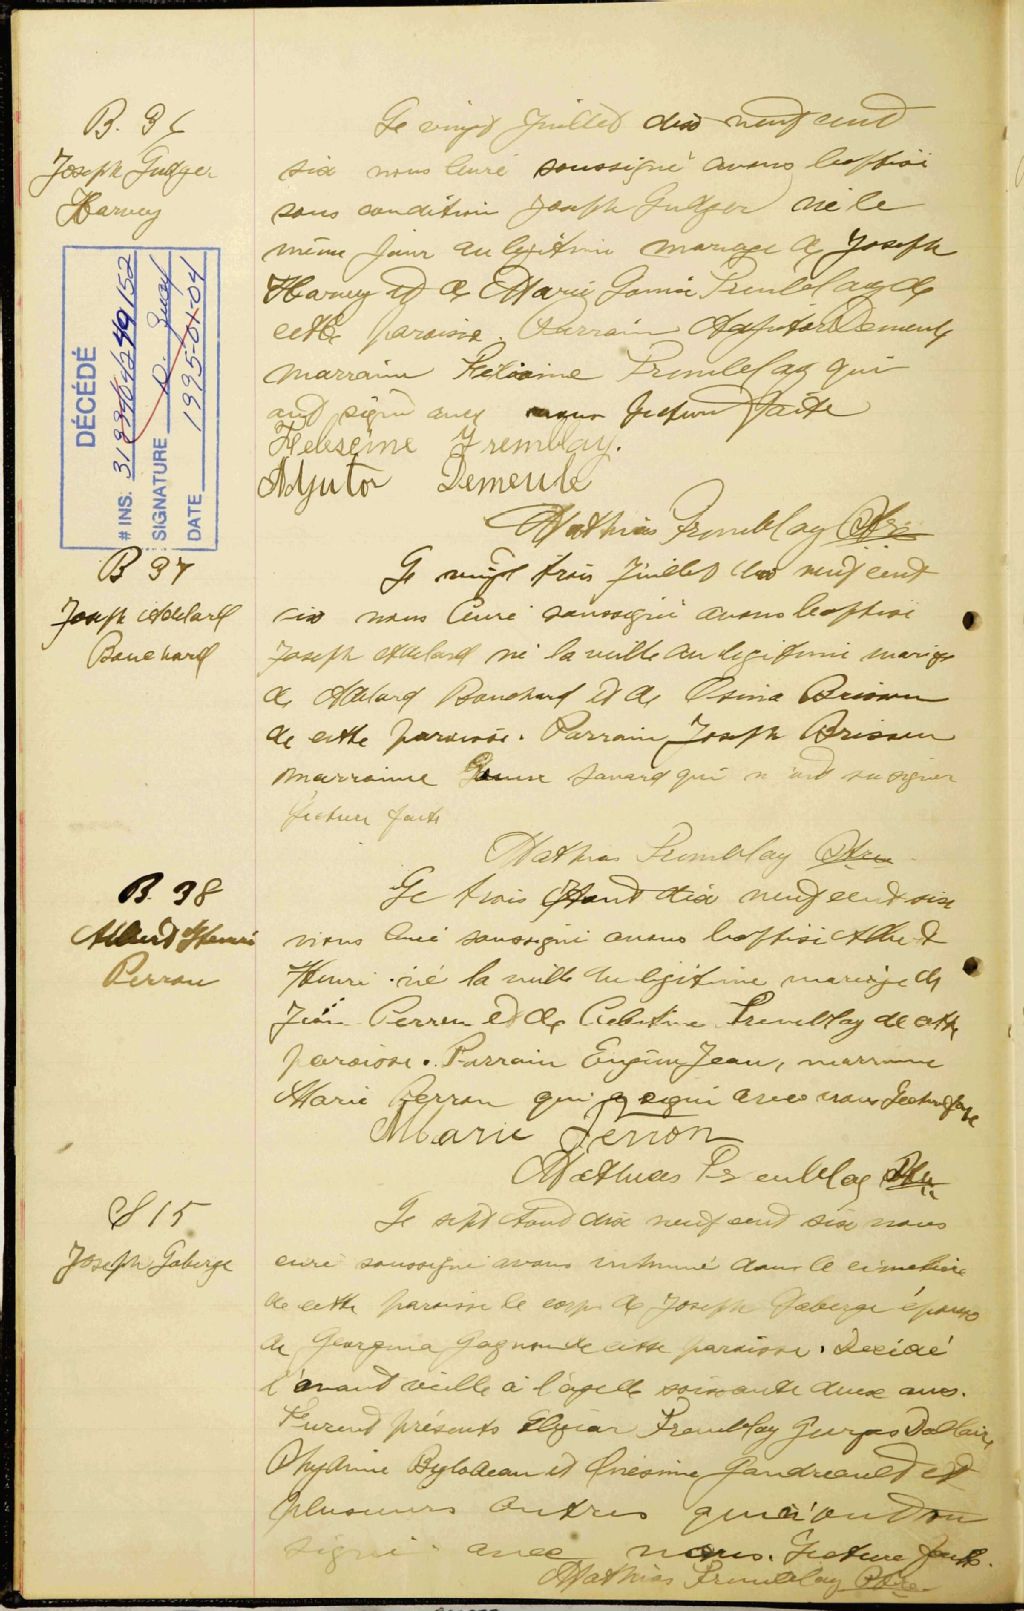 B. 36
Joseph Gudger
Harvey
DÉCÉDÉ
# INS.
SIGNATURE
DATE 1995-01-04
Le vingt Juillet dix neuf cent
six nous Curé soussigné avons baptisé
sous condition Joseph Gudger né le
même jour du légitime mariage de Joseph
Harvey et de Marie Tremblay de
cette paroisse. Parrain Adjutor Demeule
marraine Tremblay qui
ont signé avec nous lecture faite
Tremblay.
Adjutor Demeule
Mathias Tremblay Ptre
B 37
Joseph Adelard
Bouchard
Le vingt trois Juillet dix neuf cent
six nous Curé soussigné avons baptisé
Joseph Adelard né la veille du légitime mariage
de Adelard Bouchard et de Osina Brisson
de cette paroisse. Parrain Joseph Brisson
marraine Savard qui n'ont su signer
lecture faite
Mathias Tremblay Ptre
B. 38
Albert Henri
Perron
Le trois Août dix neuf cent six
nous Curé soussigné avons baptisé Albert
Henri né la veille du légitime mariage de
Jean Perron et de Célestine Tremblay de cette
paroisse. Parrain Eugène Jean, marraine
Marie Perron qui a signé avec nous Lecture faite
Marie Perron
Mathias Tremblay Ptre
S 15
Joseph Laberge
Le sept Août dix neuf cent six nous
curé soussigné avons inhumé dans le cimetière
de cette paroisse le corps de Joseph Laberge époux
de Georgina Gagnon de cette paroisse. Décédé
l'avant veille à l'âge de soixante deux ans.
Furent présents Elzéar Tremblay Dallaire
Bylodeau et Onésime Gaudreault et
plusieurs autres qui n'ont su
signé avec nous. Lecture faite.
Mathias Tremblay Ptre